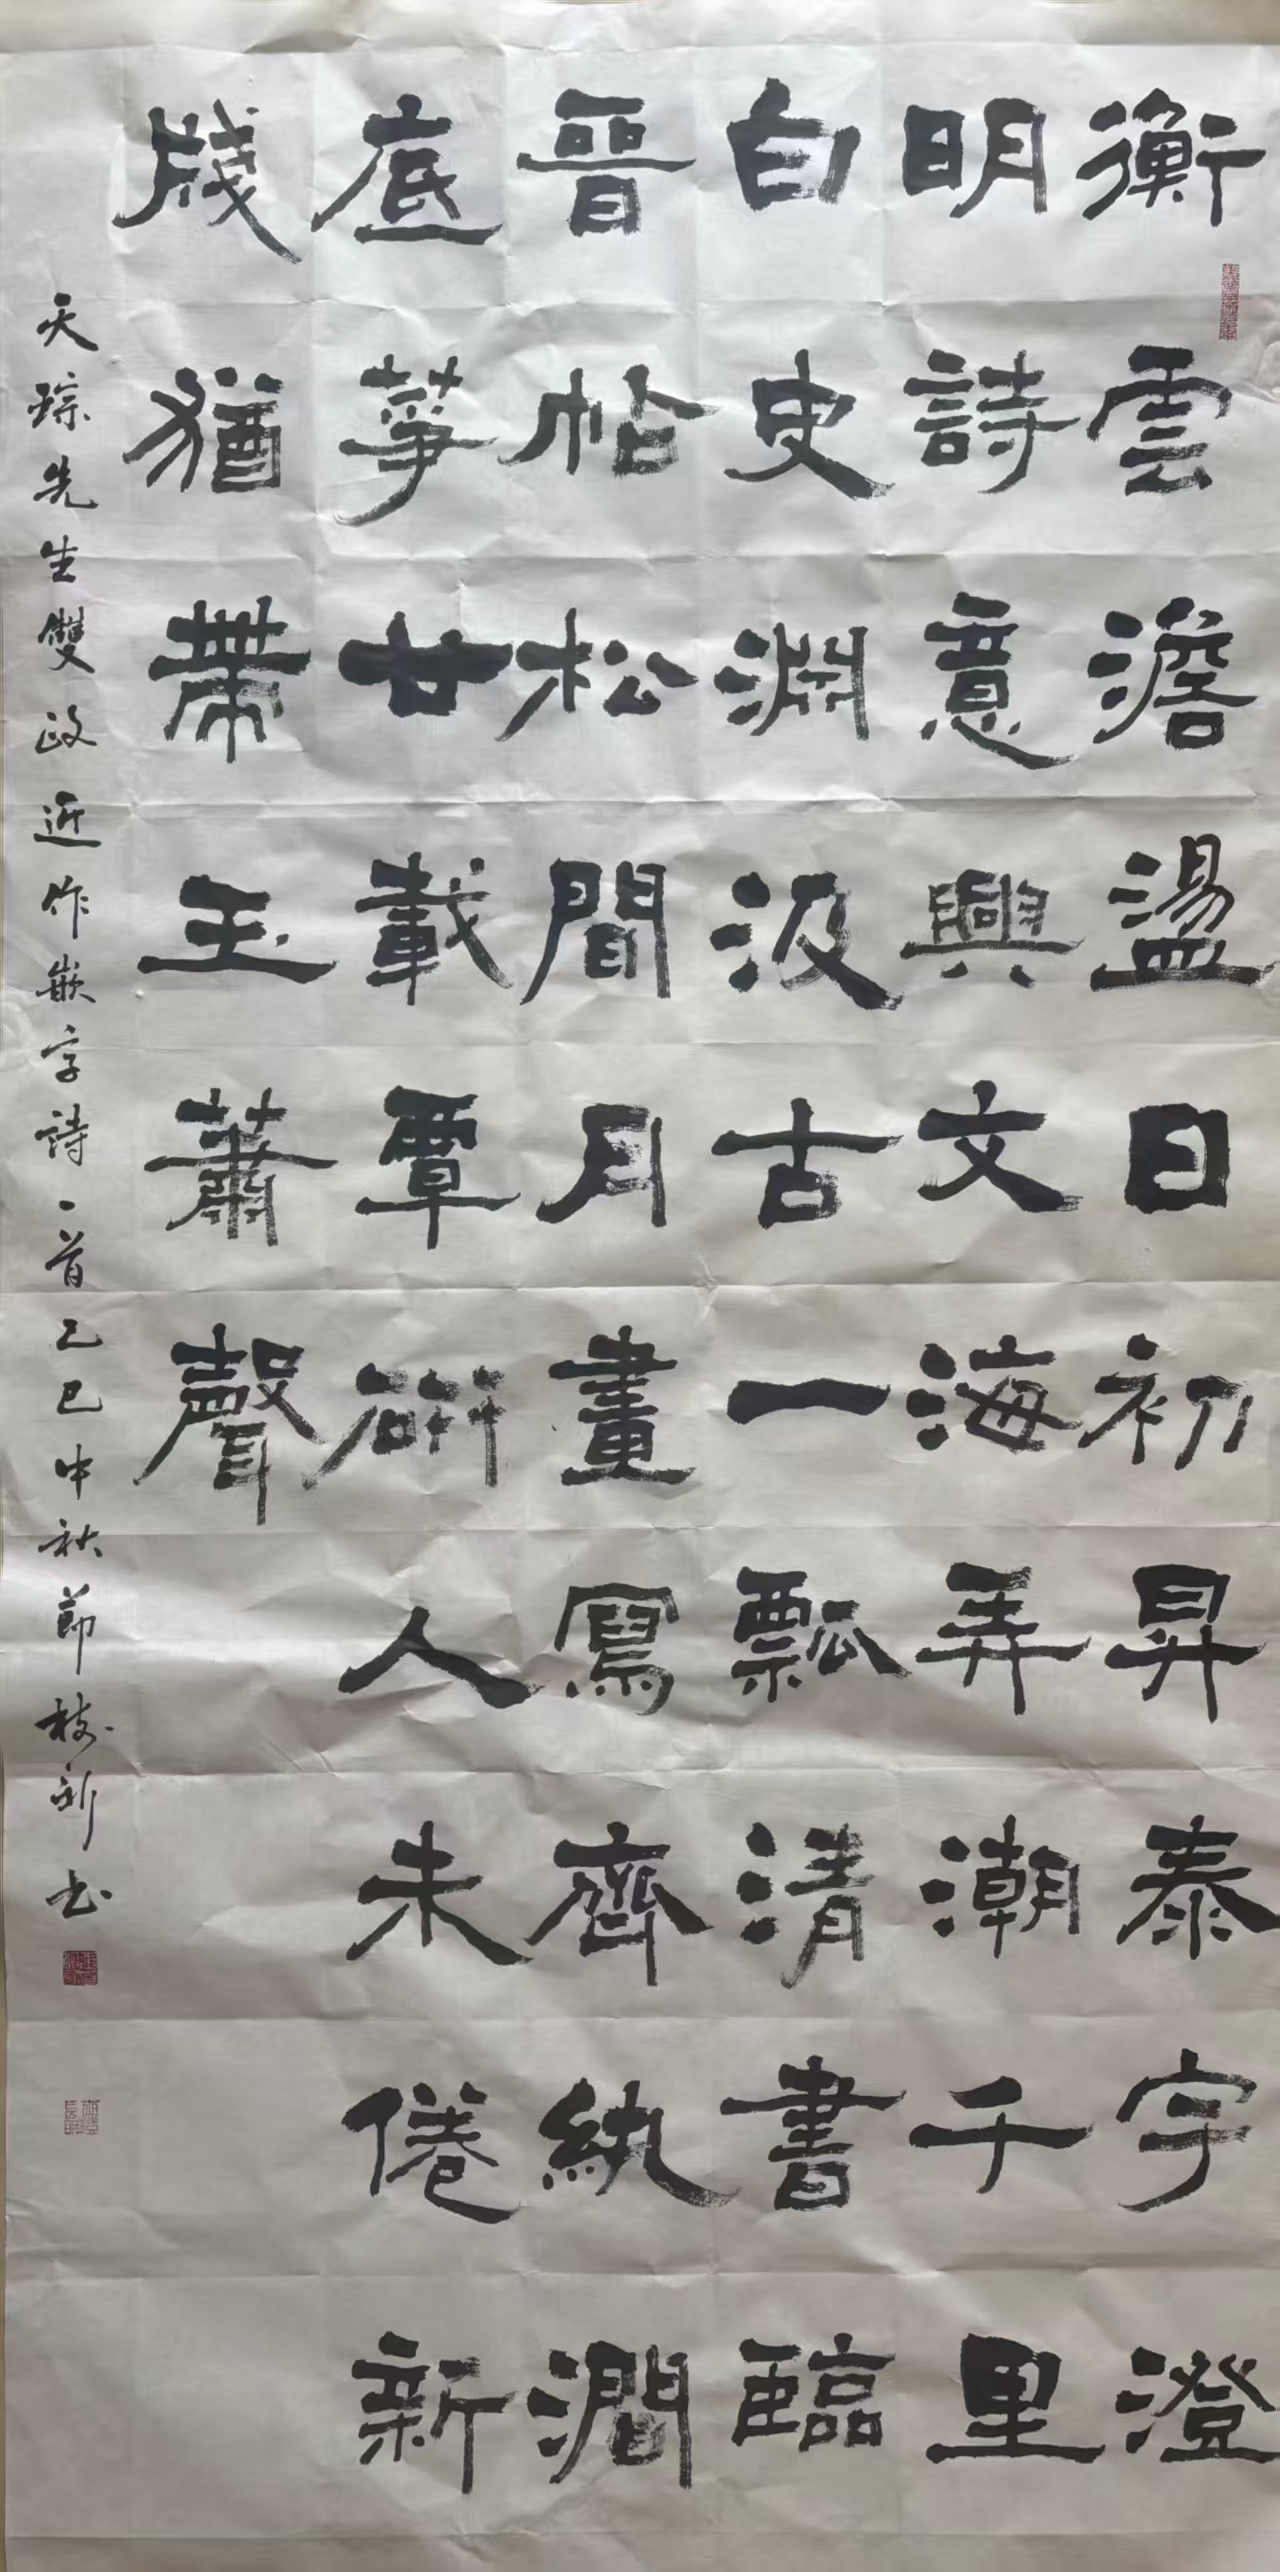 衡雲澹盪日初昇泰宇澄
明詩意興文海弄潮千里
白史淵汲古一瓢清書臨
晉帖松間月畫寫齊紈澗
底箏廿載覃研人未倦新
牋猶帶玉蕭聲
天琮先生雙政近作嵌字詩一首乙巳中秋節枝新书